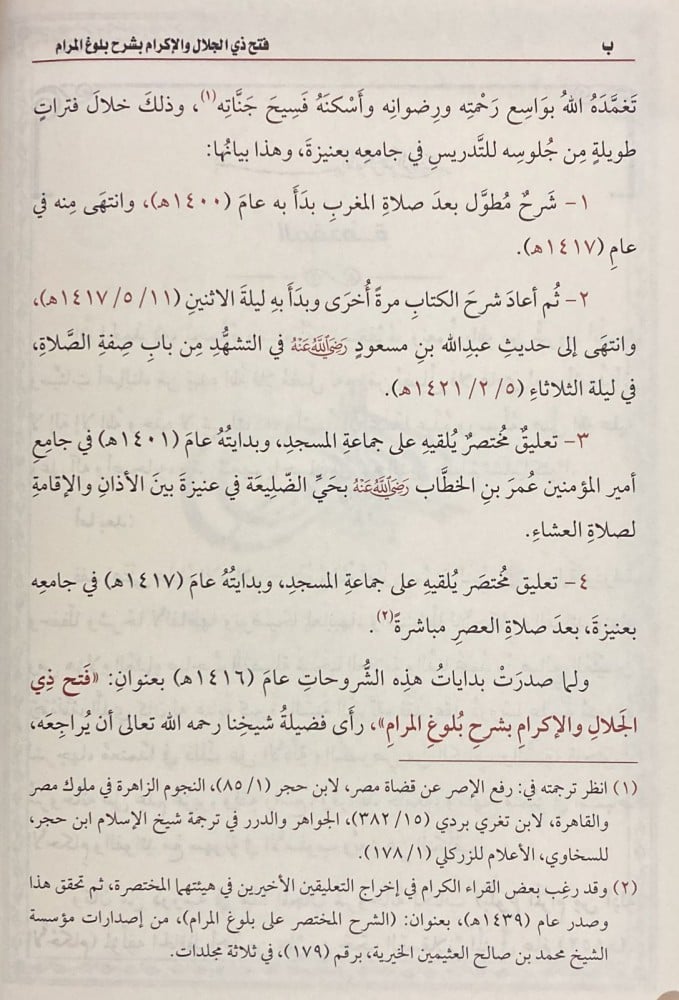 ب
فتح ذي الجلال والإكرام بشرح بلوغ المرام
تَغمَّدَهُ اللهُ بوَاسِعِ رَحْمتِه ورِضوانِه وأَسْكنَهُ فَسِيحَ جَنَّاتِه(١)، وذلكَ خلالَ فتراتٍ
طويلةٍ مِن جُلوسِه للتَّدريسِ في جامعِه بعنيزةَ، وهذا بيانُها:
١- شَرحٌ مُطوَّل بعدَ صلاةِ المغربِ بدَأَ به عامَ (١٤٠٠هـ)، وانتهَى مِنه في
عامِ (١٤١٧هـ).
٢- ثُم أعادَ شرحَ الكتابِ مرةً أُخرَى وبدَأَ بهِ ليلةَ الاثنينِ (١١/ ٥/ ١٤١٧هـ)،
وانتهَى إلى حديثِ عبدِالله بنِ مسعودٍ رَضِيَاللَّهُعَنْهُ في التشهُّدِ مِن بابِ صِفةِ الصَّلاةِ،
في ليلة الثلاثاءِ (٥/ ٢/ ١٤٢١هـ).
٣- تعليقٌ مُختصرٌ يُلقيهِ على جماعةِ المسجدِ، وبدايتُهُ عامَ (١٤٠١هـ) في جامِعِ
أميرِ المؤمنين عُمرَ بنِ الخطَّابِ رَضِيَاللَّهُعَنْهُ بحَيِّ الضّلِيعَة في عنيزةَ بينَ الأذانِ والإقامةِ
لصلاةِ العشاءِ.
٤- تعليق مُختصَر يُلقيهِ على جماعةِ المسجدِ، وبدايتُهُ عامَ (١٤١٧هـ) في جامعِه
بعنيزةَ، بعدَ صلاةِ العصرِ مباشرةً(٢).
ولما صدرَتْ بداياتُ هذِه الشُّروحاتِ عامَ (١٤١٦هـ) بعنوانِ: «فَتح ذِي
الجَلالِ والإكرامِ بشَرحِ بُلوغِ المرامِ»، رأَى فضيلةُ شيخِنا رحمه الله تعالى أن يُراجِعَه،
(١) انظر ترجمته في: رفع الإصر عن قضاة مصر، لابن حجر (١/ ٨٥)، النجوم الزاهرة في ملوك مصر
والقاهرة، لابن تغري بردي (١٥/ ٣٨٢)، الجواهر والدرر في ترجمة شيخ الإسلام ابن حجر،
للسخاوي، الأعلام للزركلي (١/ ١٧٨).
(٢) وقد رغِب بعض القراء الكرام في إخراج التعليقين الأخيرين في هيئتهما المختصرة، ثم تحقق هذا
وصدر عام (١٤٣٩هـ)، بعنوان: (الشرح المختصر على بلوغ المرام)، من إصدارات مؤسسة
الشيخ محمد بن صالح العثيمين الخيرية، برقم (١٧٩)، في ثلاثة مجلدات.